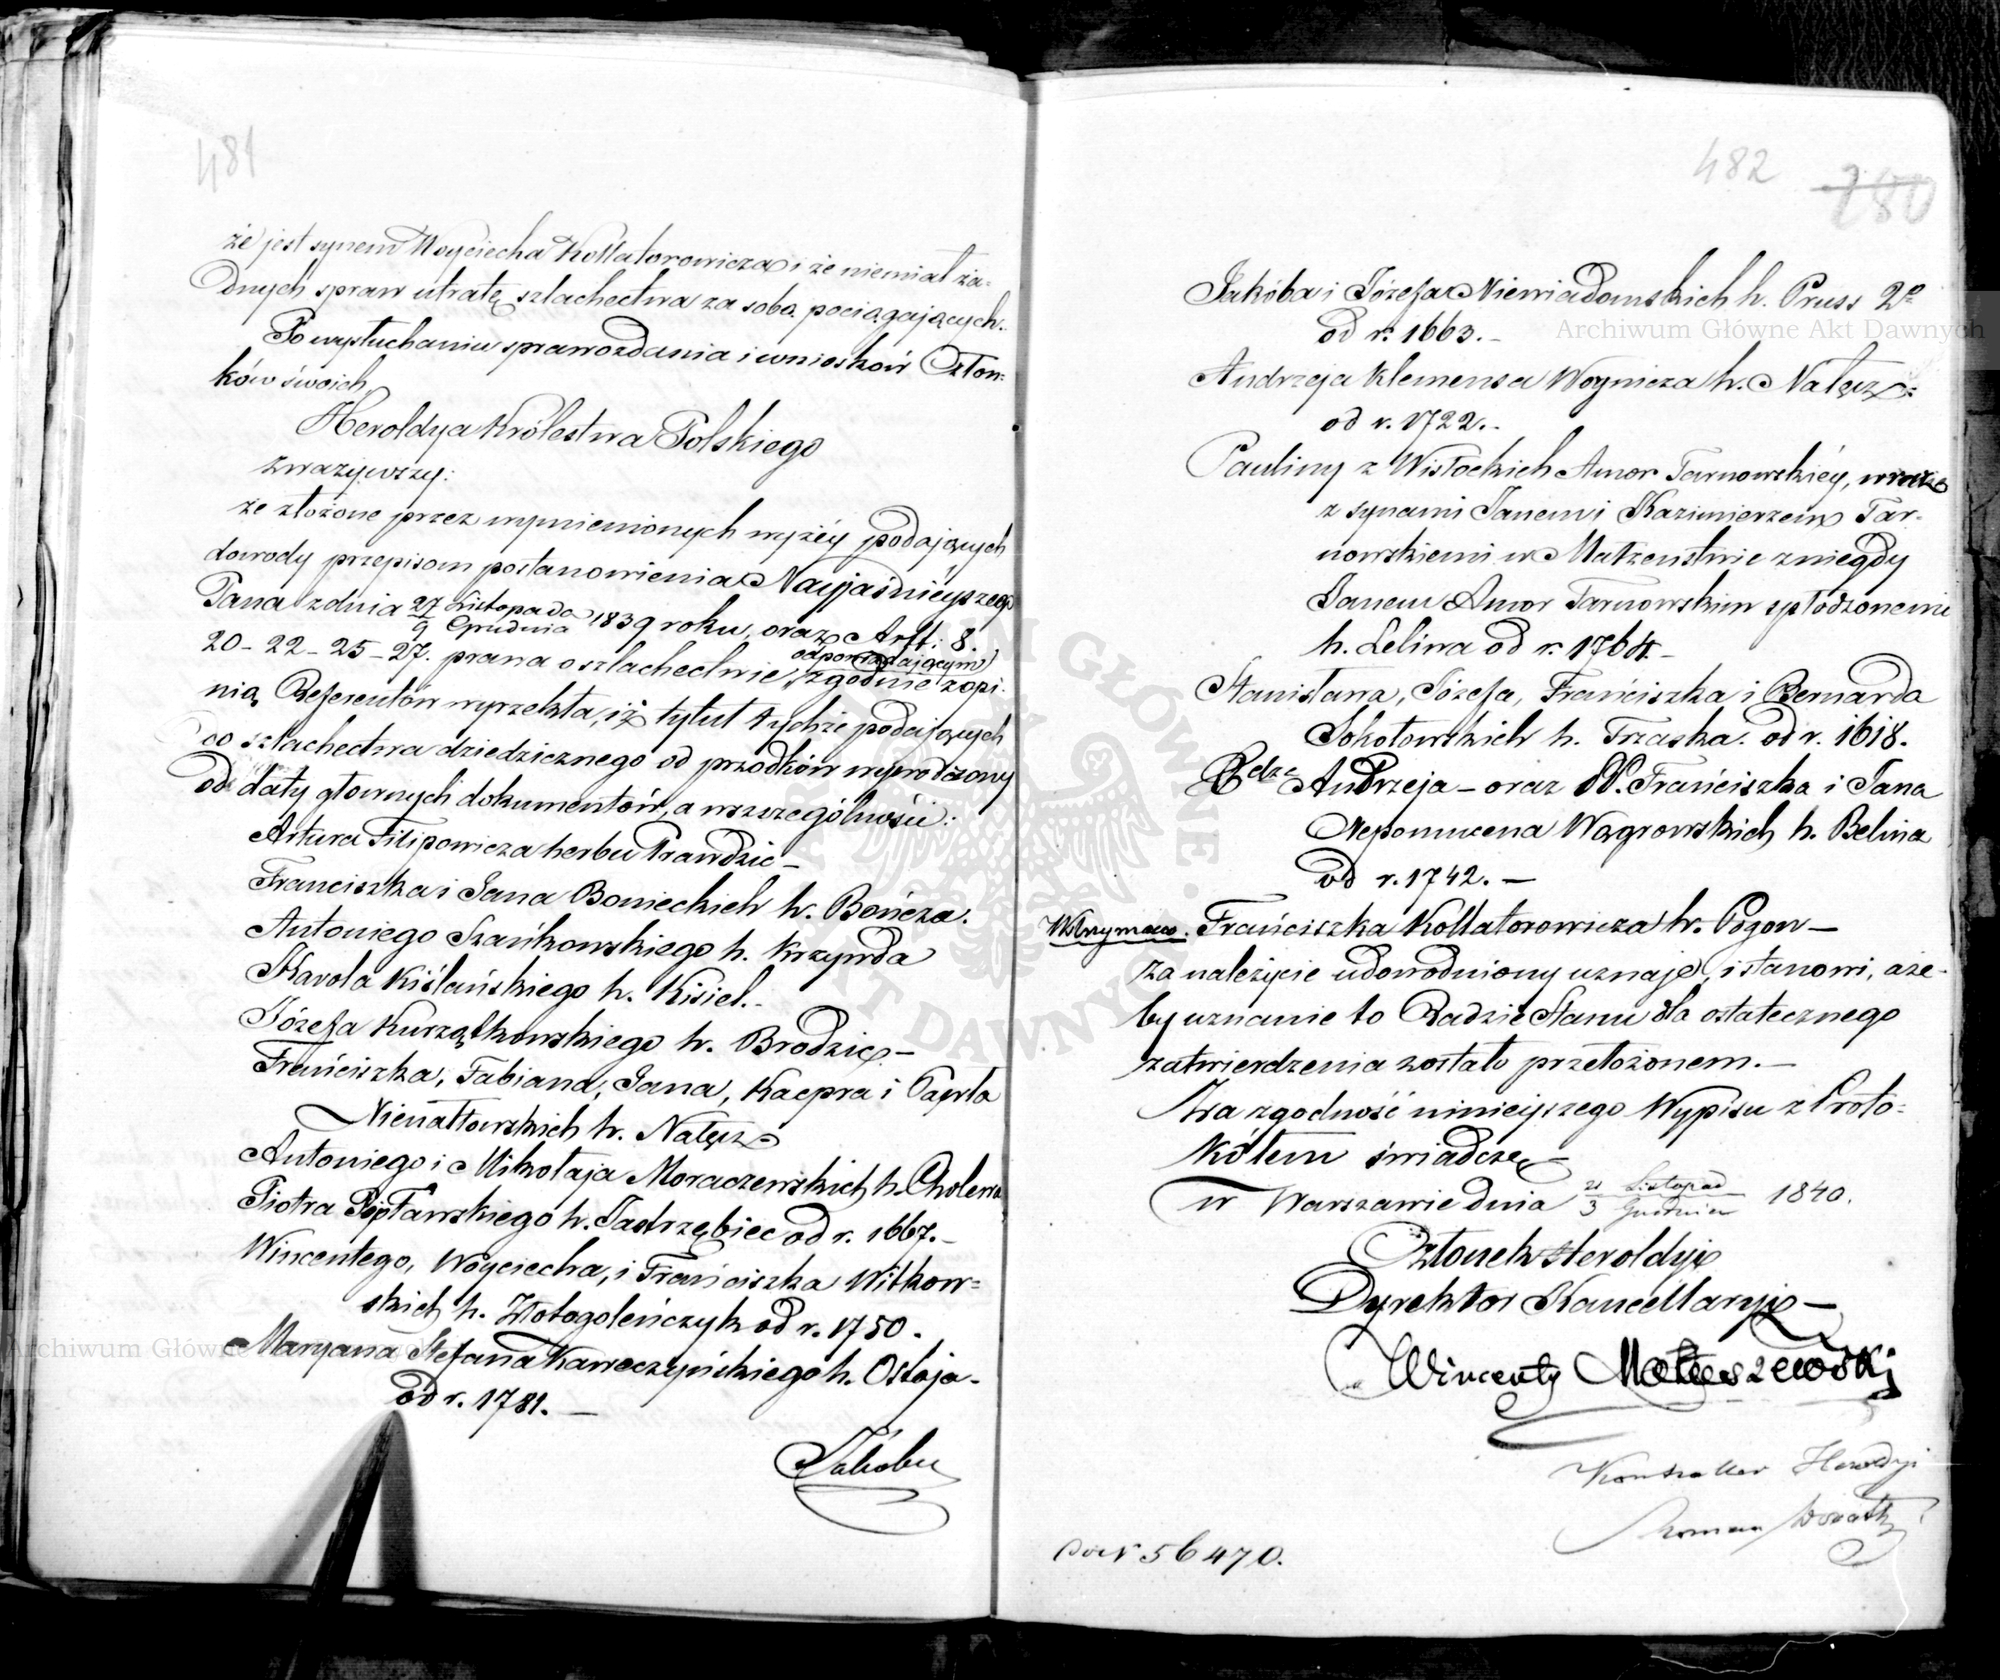 481
że jest synem Woyciecha Kollatorowicza i że niemiał ża-
dnych spraw utratę szlachectwa za sobą pociągających.
Po wysłuchaniu sprawozdania i wniosków Człon-
ków swoich
Heroldya Królestwa Polskiego
zważywszy:
że złożone przez wymienionych wyżéy podających
dowody przepisom postanowienia Nayjaśnieyszego
Pana z dnia 27 Listopada / 9 Grudnia 1839 roku, oraz Artt: 8.
20 - 22 - 25 - 27. prawa o szlachectwie odpowiadającym zgodnie z opi-
nią Referentów wyrzekła, iż tytuł tychże podających
do szlachectwa dziedzicznego od przodków wywodzony
od daty głownych dokumentów, a wszczególności:
Artura Filipowicza herbu Prawdzic -
Franciszka i Jana Bonieckich h. Bończa.
Antoniego Szańkowskiego h. Krzywda
Karola Kiślańskiego h. Kisiel. -
Józefa Kurządkowskiego h. Brodzic -
Franciszka, Fabiana, Jana, Kacpra i Pawła
Nienałtowskich h. Nałęcz
Antoniego i Mikołaja Moraczewskich h. Cholewa
Piotra Popławskiego h. Jastrzębiec od r. 1667. -
Wincentego, Woyciecha, i Franciszka Witkow-
skich h. Złotogoleńczyk od r. 1750.
Maryana Stefana Kaweczyńskiego h. Ostoja -
od r. 1781. -
Jakóba
482
280
Jakóba i Józefa Niewiadomskich h. Pruss 2o
od r. 1663. -
Andrzeja Klemensa Woynicza h. Nałęcz:
od r. 1722. -
Pauliny z Wisłockich Amor Tarnowskiéy, wraz
z synami Janem i Kazimierzem Tar-
nowskiemi w Małżeństwie z niegdy
Janem Amor Tarnowskim spłodzonemi
h. Leliwa od r. 1764. -
Stanisława, Józefa, Franciszka i Bernarda
Sokołowskich h. Trzaska. od r. 1618.
Andrzeja - oraz Franciszka i Jana
Nepomucena Wągrowskich h. Belina
od r. 1742. -
Wstrzymano. Franciszka Kollatorowicza h. Pogon -
za należycie udowodniony uznaje, i stanowi, aże-
by uznanie to Radzie Stanu dla ostatecznego
zatwierdzenia zostało przełożonem. -
Za zgodność ninieyszego Wypisu z Proto-
kółem świadczę -
w Warszawie dnia 21 Listopad / 3 Grudnia 1840.
Członek Heroldyi
Dyrektor Kancellaryi -
Wincenty Matuszewski
Kontroller Heroldyi
Roman
56470.
Archiwum Główne Akt Dawnych
Archiwum Główne